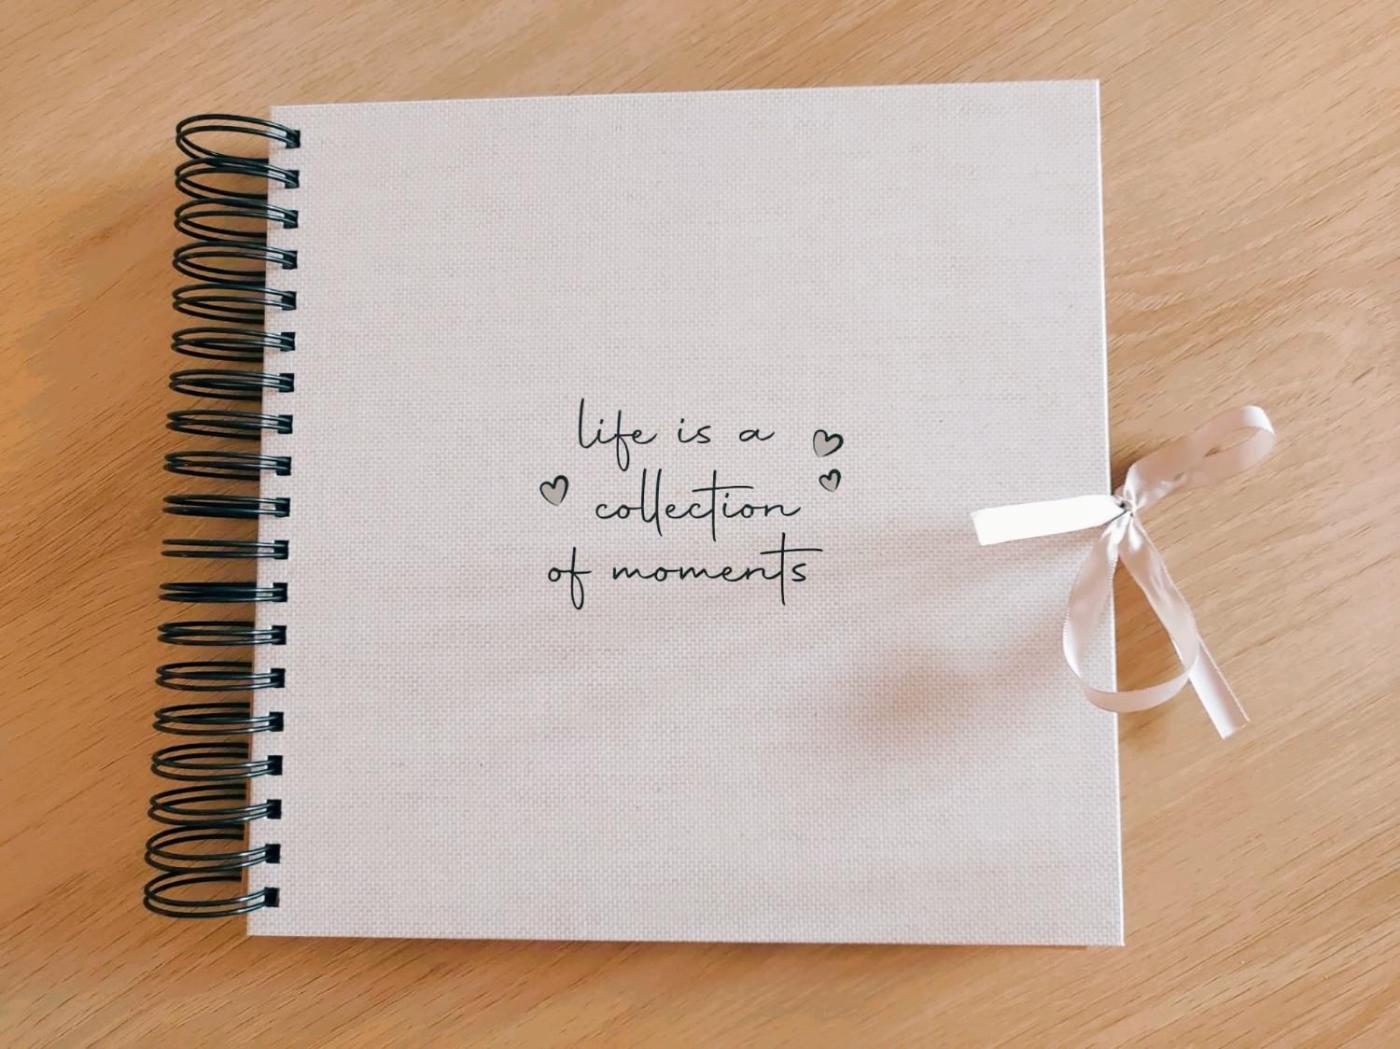 life is a
collection
of moments